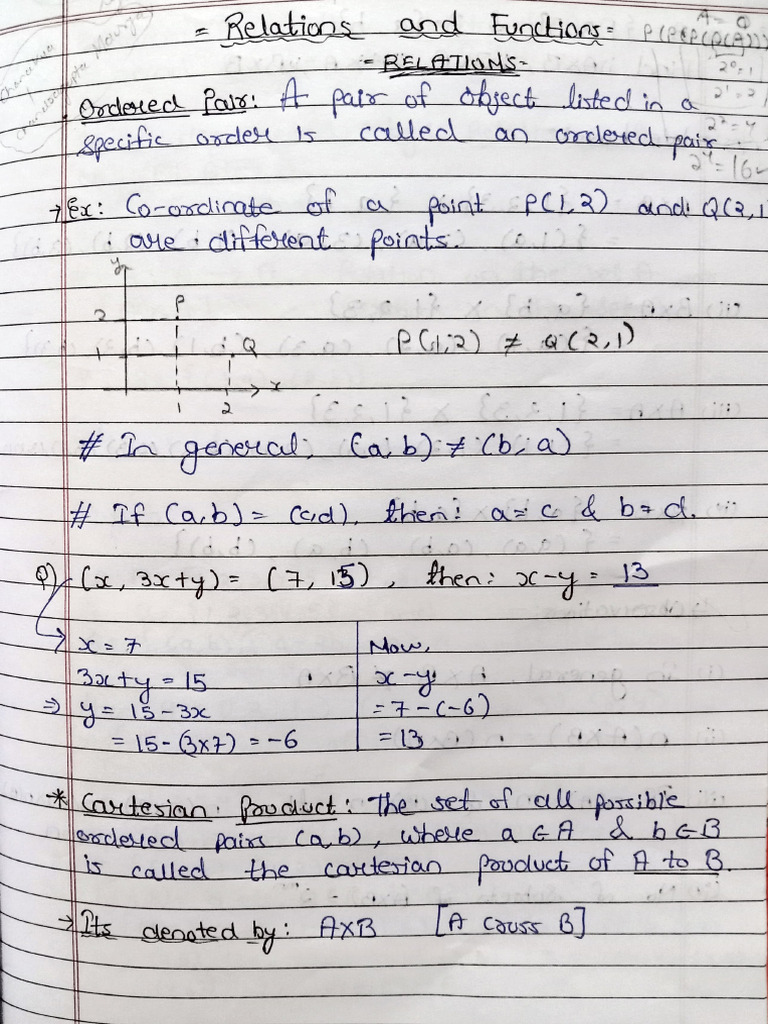 = Relations and Functions =
A = Q
P(P(P(P(A))))
= RELATIONS -
2⁰=1
2¹=2
2²=4
2⁴=16
Ordered Pair: A pair of object listed in a
specific order is called an ordered pair.
→ Ex: Co-ordinate of a point P(1,2) and Q(2,1
are different points.
y
2 P
1 Q
x
1 2
P(1,2) ≠ Q(2,1)
# In general, (a,b) ≠ (b,a)
# If (a,b) = (c,d), then: a = c & b = d.
Q) (x, 3x+y) = (7, 15), then: x-y = 13
→ x = 7
3x+y = 15
⇒ y = 15-3x
= 15-(3x7) = -6
Now,
x-y
= 7-(-6)
= 13
* Cartesian Product: The set of all possible
ordered pairs (a,b), where a ∈ A & b ∈ B
is called the cartesian product of A to B.
→ Its denoted by: AXB [A cross B]